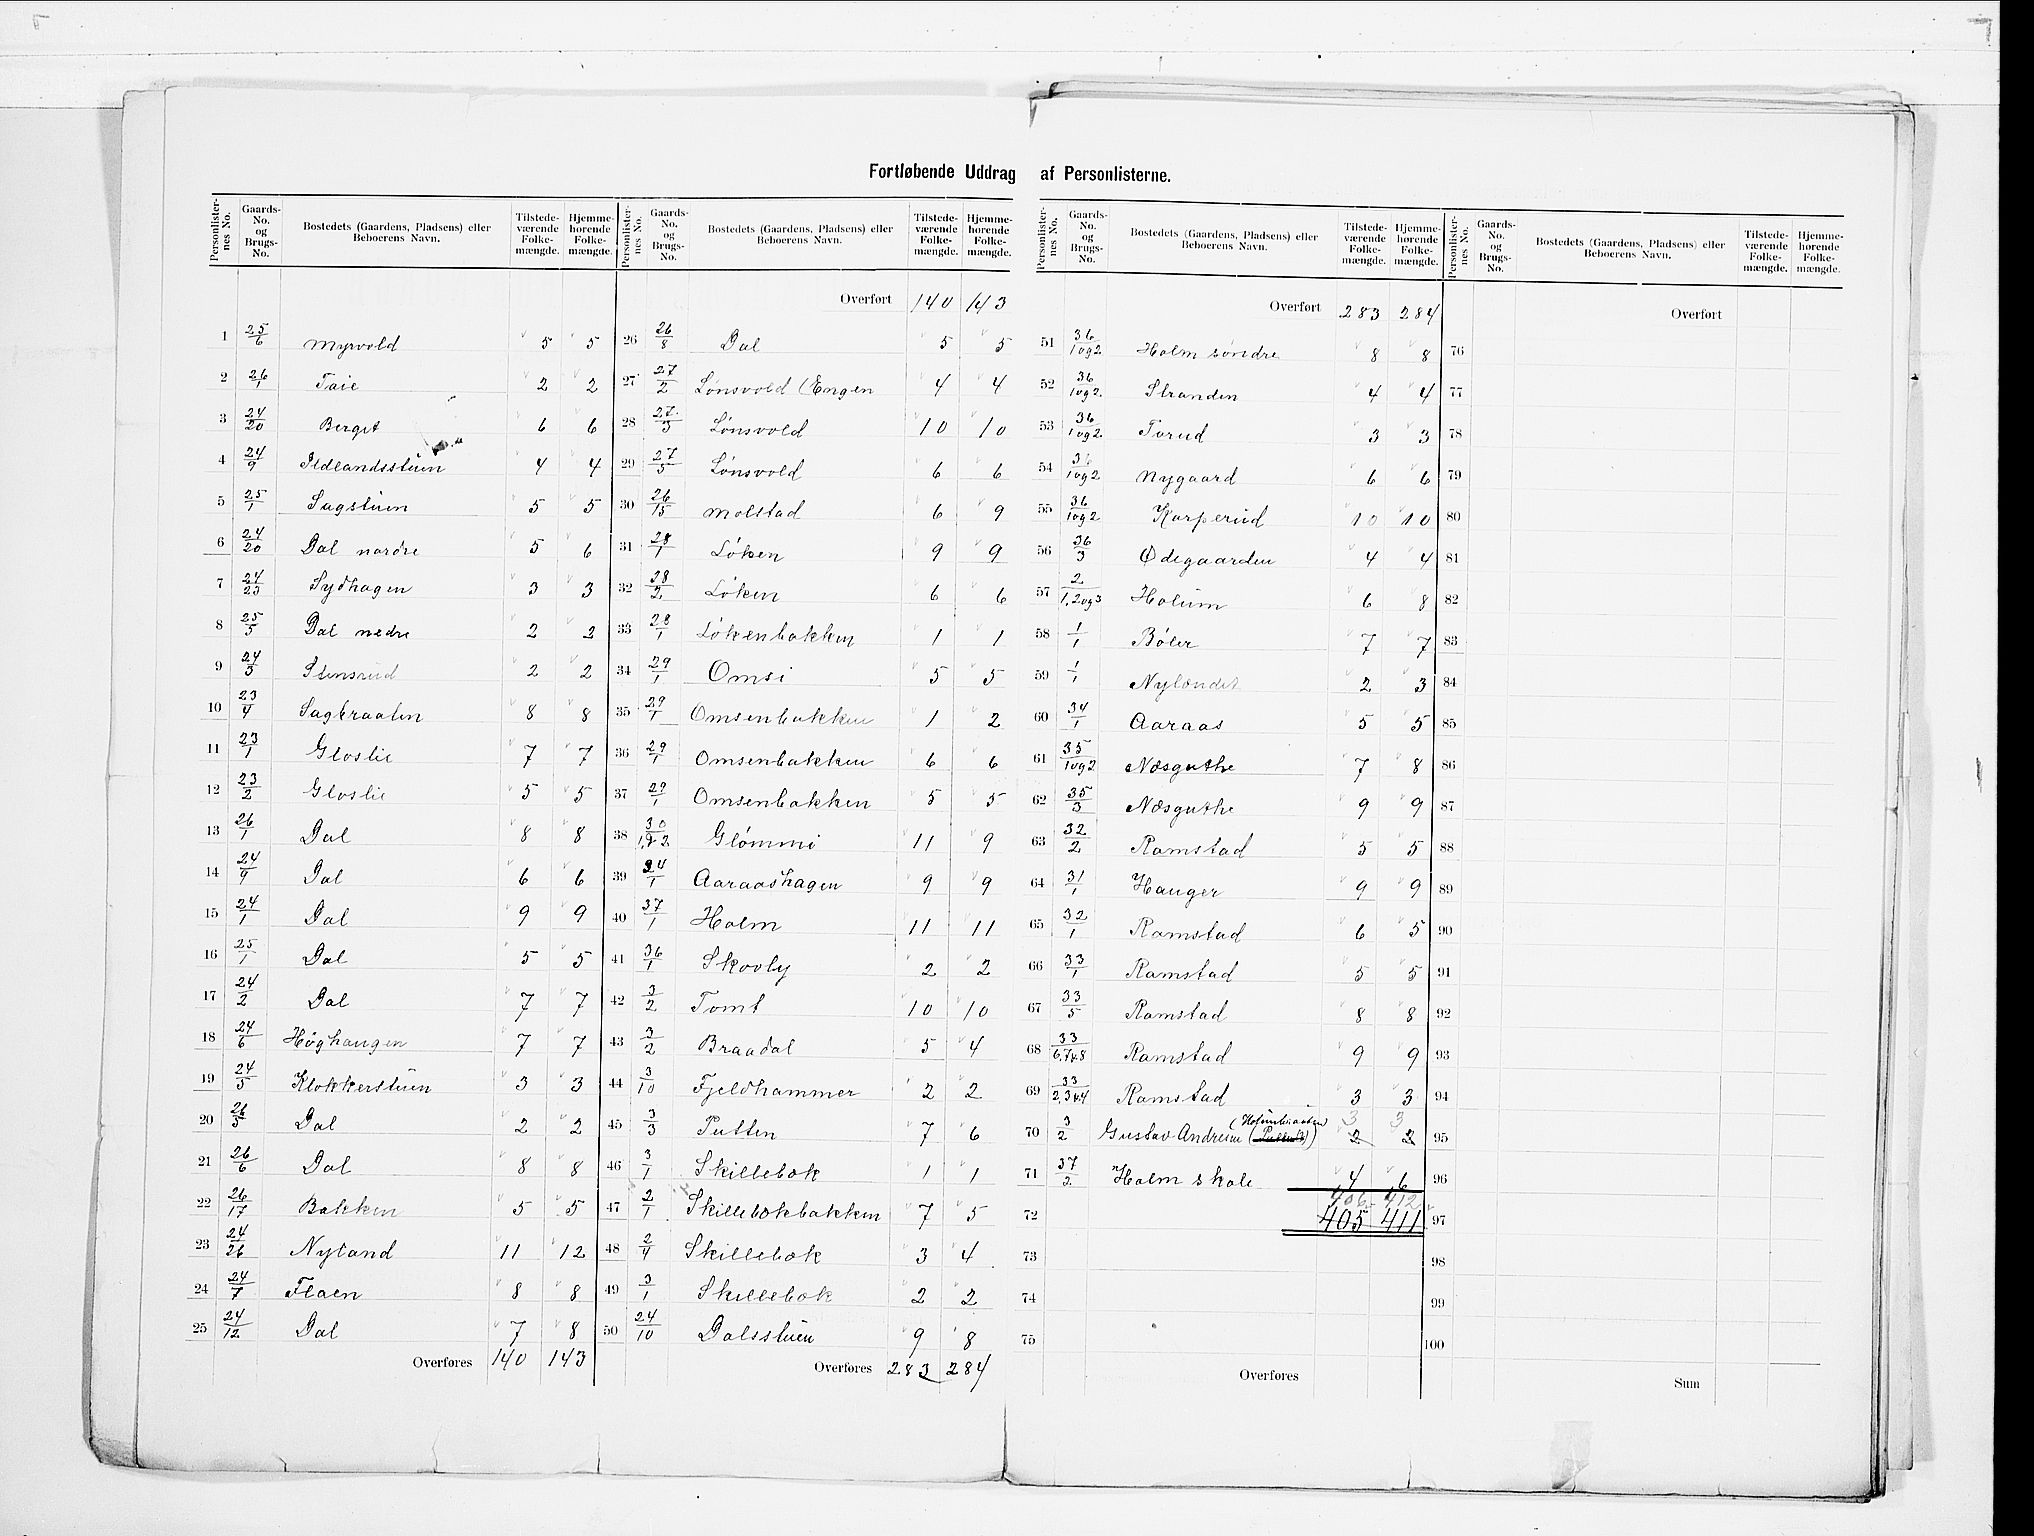 Fortløbende Uddrag af Personlisterne.
Personlister-nes No. Gaards-No. og Brugs-No. Bostedets (Gaardens, Pladsens) eller Beboerens Navn. Tilstede-værende Folke-mængde. Hjemme-hørende Folke-mængde.
1 25/6 Myrvold 5 5
2 26/1 Taie 2 2
3 24/20 Berget 6 6
4 24/9 Ildlandsstuen 4 4
5 25/1 Sagstuen 5 5
6 24/20 Dal nordre 5 6
7 24/23 Sydhagen 3 3
8 25/5 Dal nedre 2 2
9 24/3 Stensrud 2 2
10 23/4 Sagbraaten 8 8
11 23/1 Gloslie 7 7
12 23/2 Gloslie 5 5
13 26/1 Dal 8 8
14 24/9 Dal 6 6
15 24/1 Dal 9 9
16 25/1 Dal 5 5
17 24/2 Dal 7 7
18 24/6 Høghaugen 7 7
19 24/5 Klokkerstuen 3 3
20 26/5 Dal 2 2
21 26/6 Dal 8 8
22 26/17 Bakken 5 5
23 24/26 Nyland 11 12
24 24/7 Flaen 8 8
25 24/12 Dal 7 8
Overføres 140 143
Personlister-nes No. Gaards-No. og Brugs-No. Bostedets (Gaardens, Pladsens) eller Beboerens Navn. Tilstede-værende Folke-mængde. Hjemme-hørende Folke-mængde.
Overført 140 143
26 26/8 Dal 5 5
27 27/2 Lønsvold (Engen 4 4
28 27/3 Lønsvold 10 10
29 27/5 Lønsvold 6 6
30 26/15 Molstad 6 9
31 28/1 Løken 9 9
32 28/2 Løken 6 6
33 28/1 Løkenbakken 1 1
34 29/1 Omsi 5 5
35 29/1 Omsenbakken 1 2
36 29/1 Omsenbakken 6 6
37 29/1 Omsenbakken 5 5
38 30/1,9 2 Glømmi 11 9
39 34/1 Aaraashagen 9 9
40 37/1 Holm 11 11
41 36/1 Skovly 2 2
42 3/2 Tomt 10 10
43 3/2 Braadal 5 4
44 3/10 Fjeldhammer 2 2
45 3/3 Putten 7 6
46 3/1 Skillebæk 1 1
47 2/1 Skillebækbakken 7 5
48 2/4 Skillebæk 3 4
49 3/1 Skillebæk 2 2
50 24/10 Dalsstuen 9 8
Overføres 283 284
Personlister-nes No. Gaards-No. og Brugs-No. Bostedets (Gaardens, Pladsens) eller Beboerens Navn. Tilstede-værende Folke-mængde. Hjemme-hørende Folke-mængde.
Overført 283 284
51 36/1 og 2 Holm søndre 8 8
52 36/1 og 2 Stranden 4 4
53 36/1 og 2 Torud 3 3
54 36/1 og 2 Nygaard 6 6
55 36/1 og 2 Korperud 10 10
56 36/3 Ødegaarden 4 4
57 2/1, 2 og 3 Holum 6 8
58 1/1 Bøler 7 7
59 1/1 Nylændet 2 3
60 34/1 Aaraas 5 5
61 35/1 og 2 Næsguthe 7 8
62 35/3 Næsguthe 9 9
63 32/2 Ramstad 5 5
64 31/1 Hauger 9 9
65 32/1 Ramstad 6 5
66 33/1 Ramstad 5 5
67 33/5 Ramstad 8 8
68 33/6,7 & 8 Ramstad 9 9
69 33/2,3 & 4 Ramstad 3 3
70 3/2 Gustav Andreum (Holumbraaten) 3 3 2 2
71 37/2 Holm skole 4 6
406 412
72 405 411
73
74
75
Overføres
Personlister-nes No. Gaards-No. og Brugs-No. Bostedets (Gaardens, Pladsens) eller Beboerens Navn. Tilstede-værende Folke-mængde. Hjemme-hørende Folke-mængde.
Overført
76
77
78
79
80
81
82
83
84
85
86
87
88
89
90
91
92
93
94
95
96
97
98
99
100
Sum